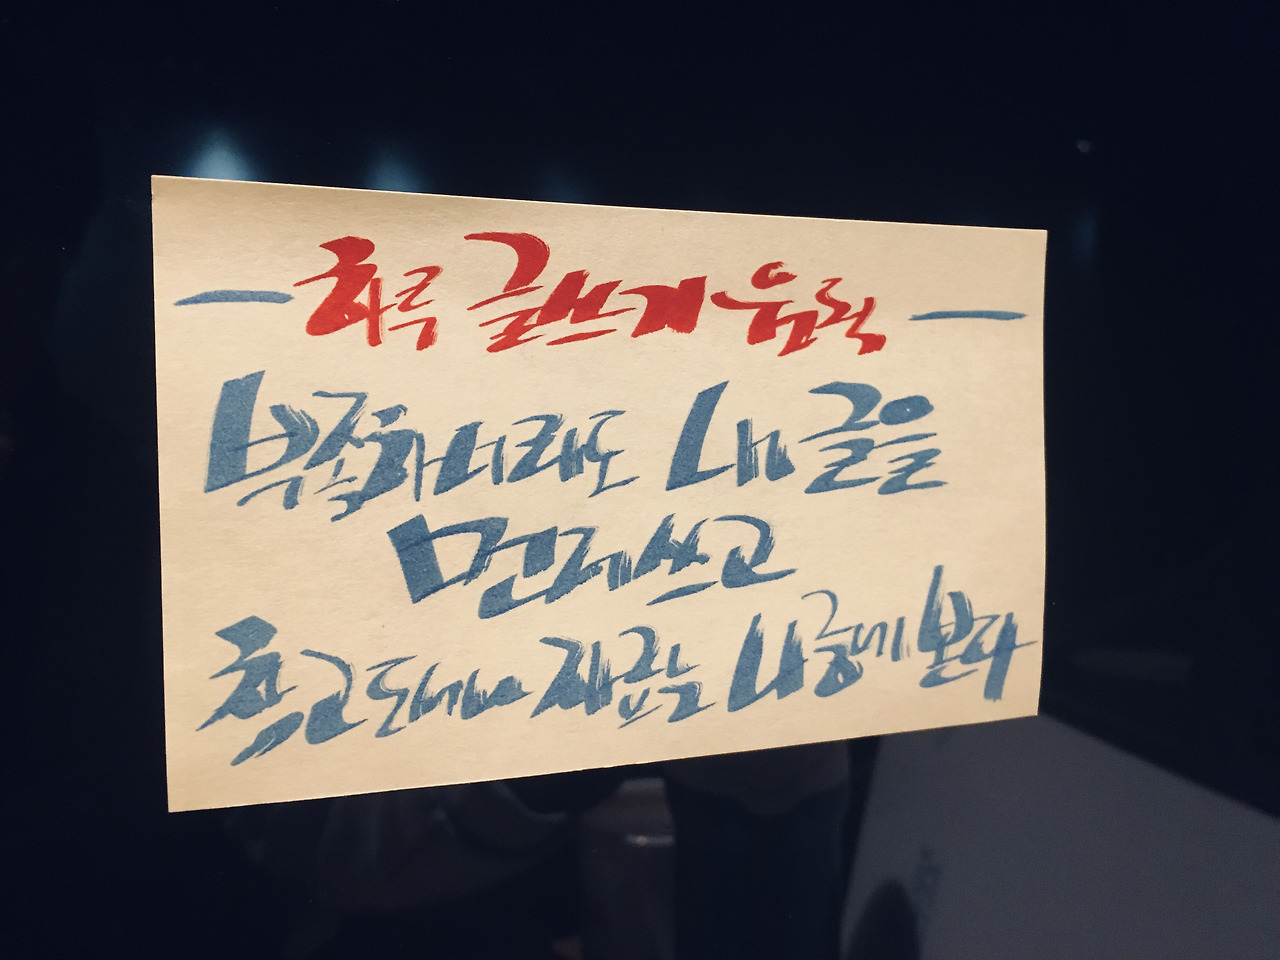 하루 글쓰기
부족하더라도 내 글을
먼저 쓰고
참고 자료는 나중에 본다